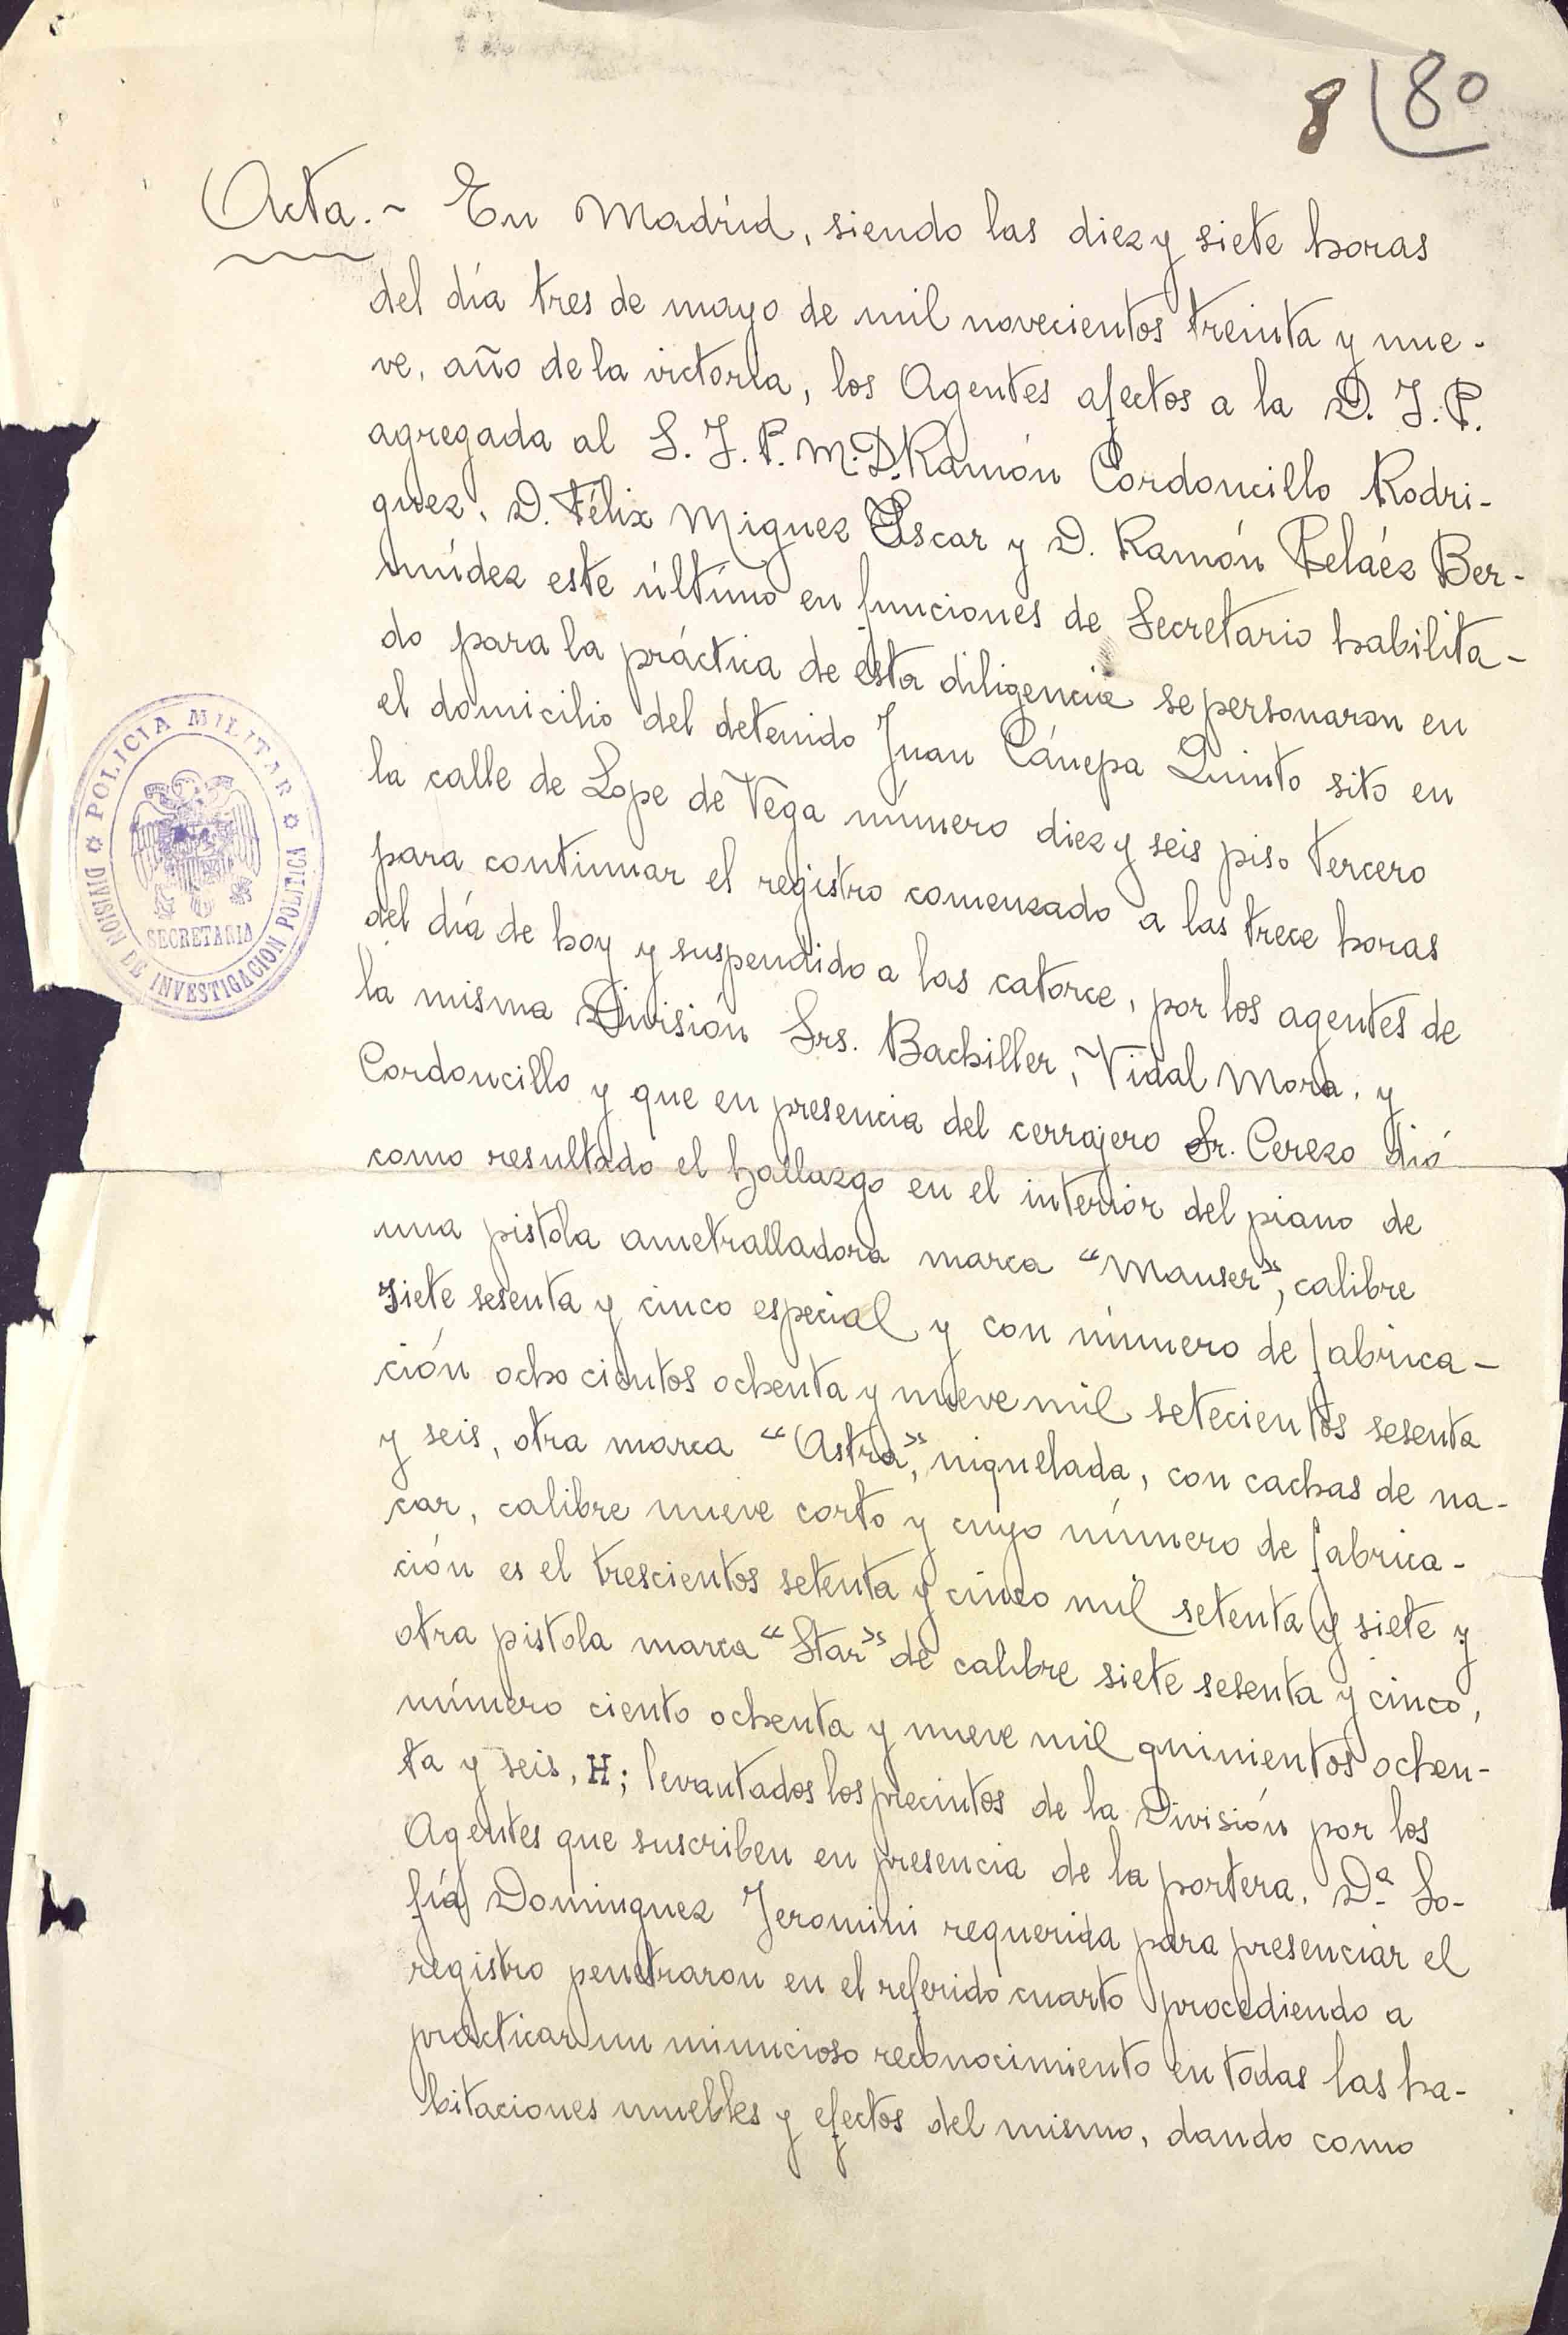 8 80
Acta.- En Madrid, siendo las diez y siete horas
del día tres de mayo de mil novecientos treinta y nue-
ve, año de la victoria, los Agentes afectos a la D. I. P.
agregada al S. I. P. M. D. Ramón Cordoncillo Rodri-
guez, D. Félix Miguez Escar y D. Ramón Peláez Ber-
múdez este último en funciones de Secretario habilita-
do para la práctica de esta diligencia se personaron en
el domicilio del detenido Juan Cánepa Quinto sito en
la calle de Lope de Vega número diez y seis piso tercero
para continuar el registro comenzado a las trece horas
del día de hoy y suspendido a las catorce, por los agentes de
la misma División Srs. Bachiller, Vidal Mora, y
Cordoncillo y que en presencia del cerrajero Sr. Cerezo dió
como resultado el hallazgo en el interior del piano de
una pistola ametralladora marca "Mauser", calibre
siete sesenta y cinco especial y con número de fabrica-
ción ochocientos ochenta y nueve mil setecientos sesenta
y seis, otra marca "Astra", niquelada, con cachas de na-
car, calibre nueve corto y cuyo número de fabrica-
ción es el trescientos setenta y cinco mil setenta y siete y
otra pistola marca "Star" de calibre siete sesenta y cinco,
número ciento ochenta y nueve mil quinientos ochen-
ta y seis, H; levantados los precintos de la División por los
Agentes que suscriben en presencia de la portera, Dª So-
fía Dominguez Jeromini requerida para presenciar el
registro penetraron en el referido cuarto procediendo a
practicar un minucioso reconocimiento en todas las ha-
bitaciones muebles y efectos del mismo, dando como
POLICIA MILITAR
DIVISION DE INVESTIGACION POLITICA
SECRETARIA